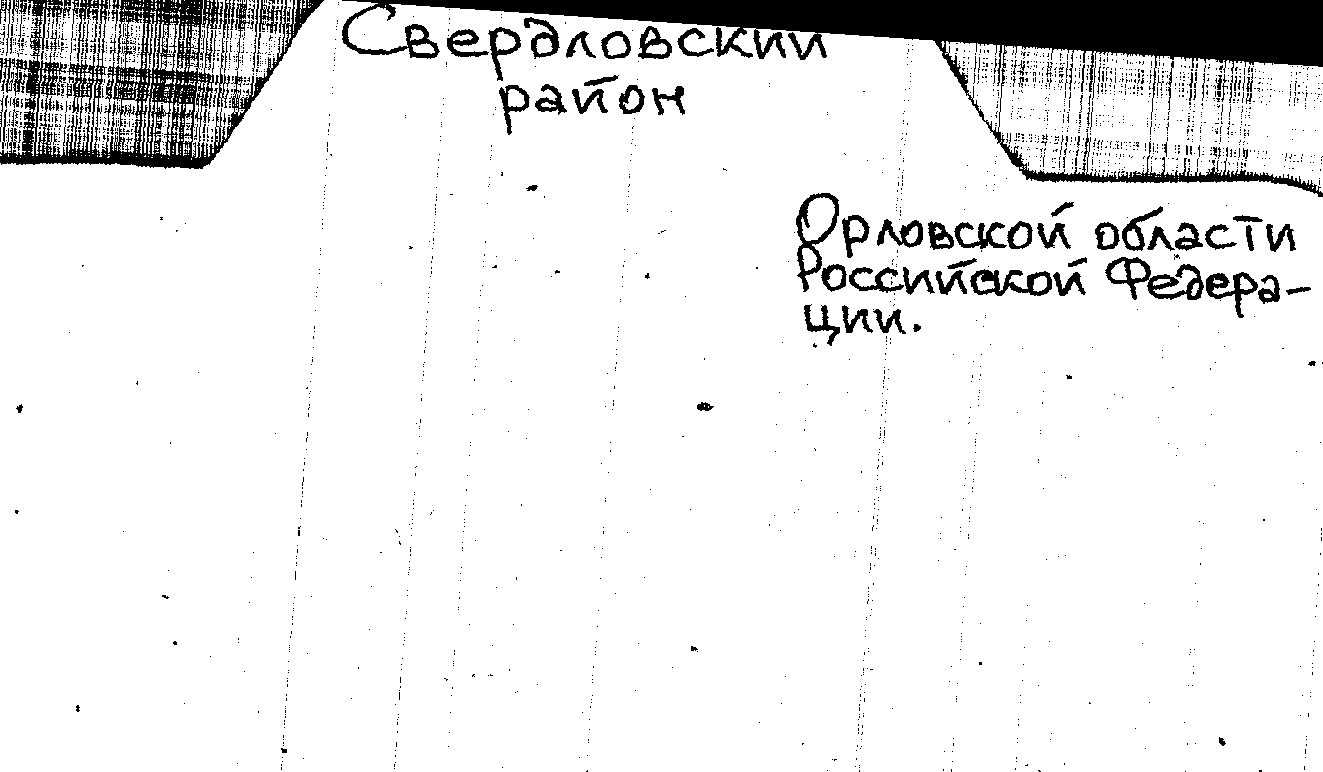 Свердловский
район
Орловской области
Российской Федера-
ции.